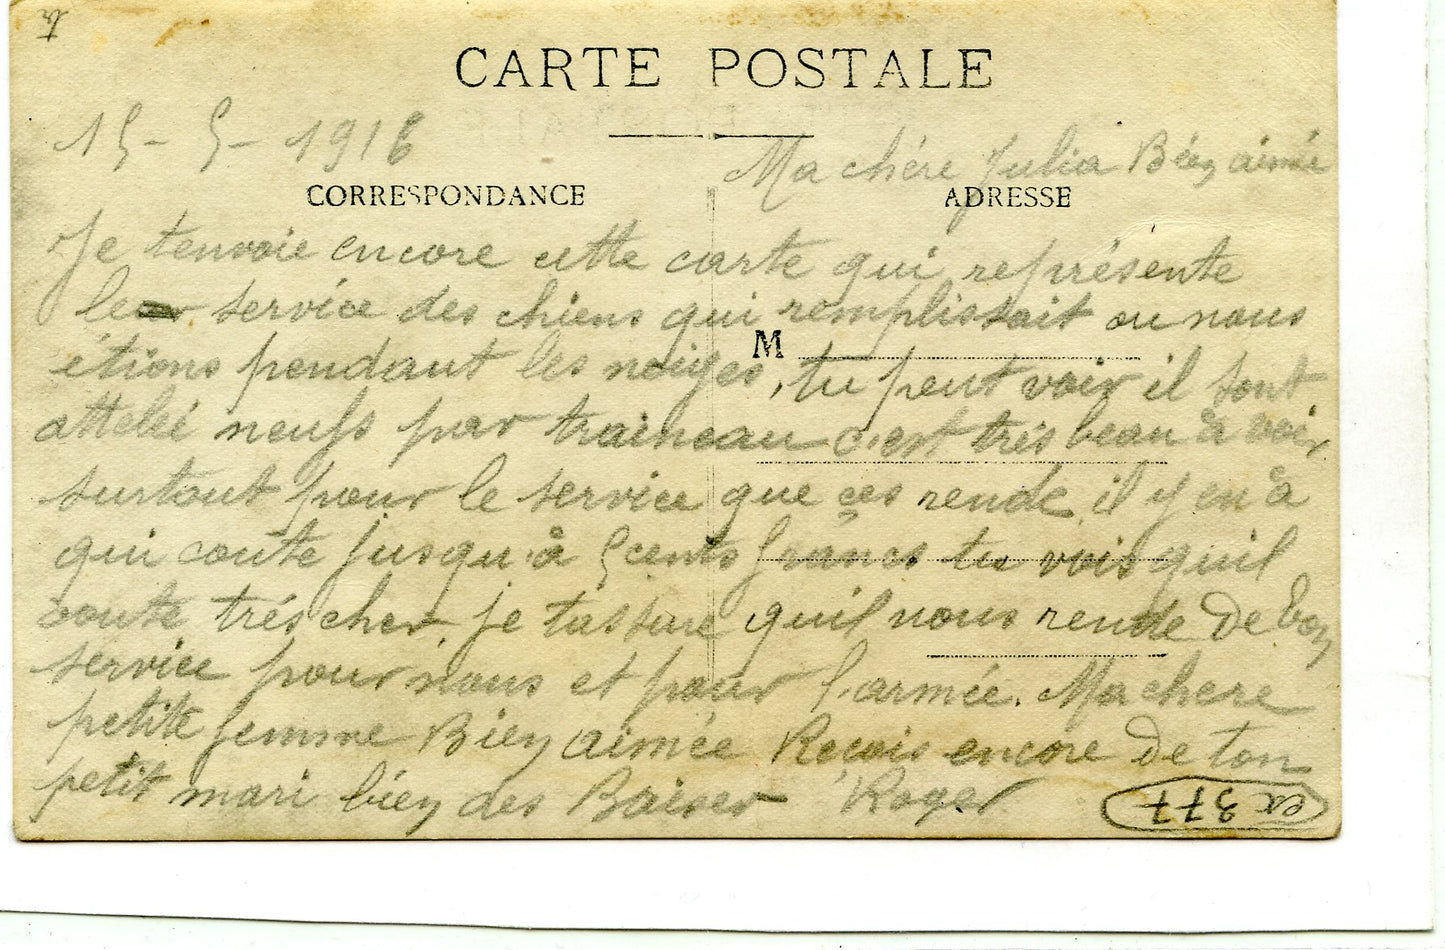 CARTE POSTALE
15-5-1916
Ma chére Julia Bien aimée
CORRESPONDANCE
ADRESSE
Je tenvoie encore cette carte qui représente
le service des chiens qui remplissait ou nous
M
étions pendant les neiges, tu peut voir il sont
attelé neufs par traineau c'est trés beau à voir
surtout pour le service que ces rende il y en à
qui coute jusqu'à 5 cents francs tu vois quil
coute trés cher. je tassure quil nous rende de bon
service pour nous et pour l'armée. Ma chere
petite femme Bien aimée Recois encore de ton
petit mari bien des Baiser Roger
ex 377